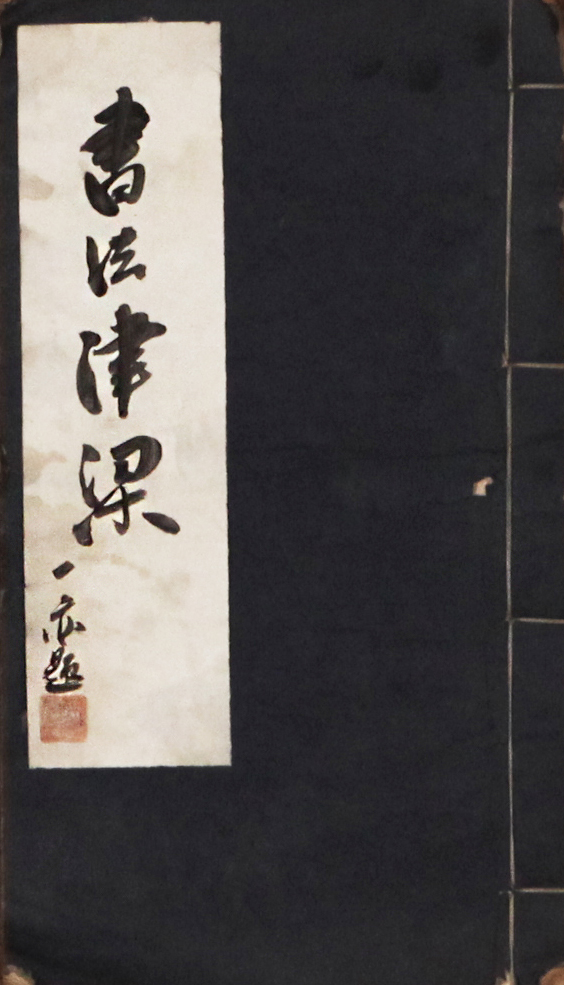 書法津梁
一亦題